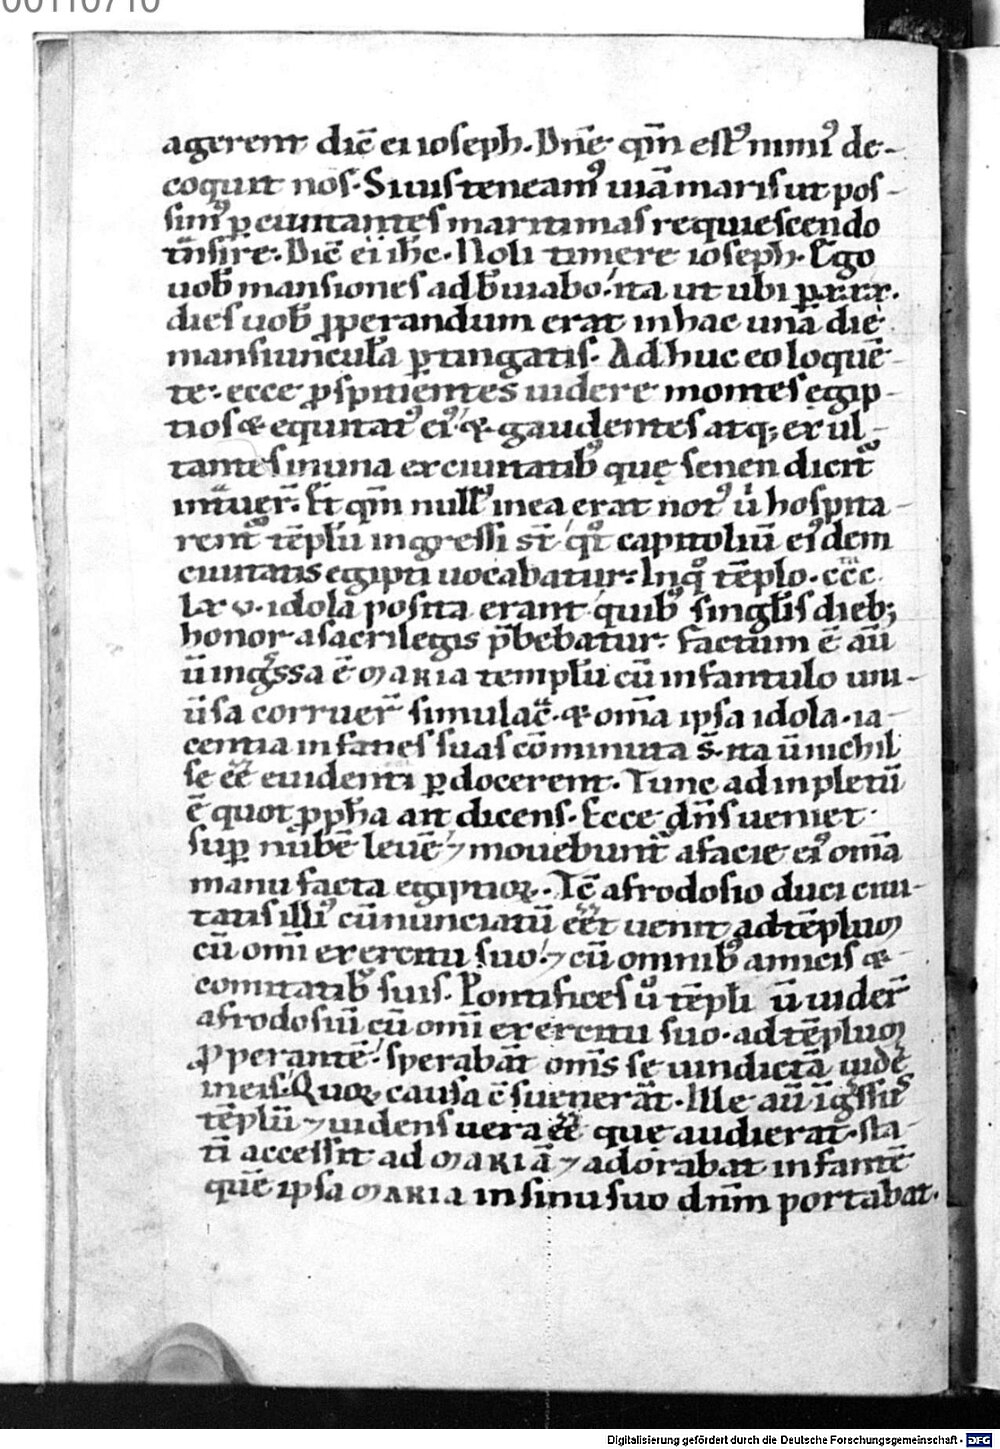 00110710
agerent dic̄ ei ioseph. Dn̄e qm̄ estꝰ nimiꝰ de-
coquit nos. Si uis teneamꝰ uiā maris ut pos-
simꝰ ꝑ ciuitantes maritimas requiescendo
tn̄sire. Dic̄ ei ih̄c. Noli timere ioseph. Ego
uob̄ mansiones adb̄uiabo. ita ut ubi ꝑ
dies uob̄ ꝓperandum erat in hac una die
mansiuncula ꝑtingatis. Adhuc eo loquē-
te. ecce ꝓspitientes uidere montes egip-
tios & equitatꝰ eiꝰ. & gaudentes atq; exul-
tantes in una ex ciuitatibꝰ quę senen dicit̄
int̄uer̄. Et qm̄ nullꝰ in ea erat notꝰ u̇ hospita-
rentꝰ tēplū ingressi st̄ qͦt capitoliū eiꝰdem
ciuitatis egipti uocabatur. In qͦ tēplo. ccc.
lxv. idola posita erant quibꝰ singlis dieb;
honor a sacrilegis p̄bebatur. factum ē aū
ū ingͤssa ē MARIA templū cū infantulo uni-
ūsa corruer̄ simulac̄. & om̄a ipsa idola. ia-
centia in faties suas cōminuta s̄. ita ū nichil
se ēē euidenti ꝑdocerent. Tunc adinpletū
ē quot ꝓph̄a ait dicens. Ecce dn̄s ueniet
suꝑ nubē leuē ⁊ mouebunt̄ a facie eiꝰ om̄a
manu facta egiptioꝝ. Tc̄ afrodosio duci ciui-
tatis illiꝰ cū nunciatū eēt uenit ad tēplum
cū om̄i exercitu suo. ⁊ cū omnibꝰ amicis &
comitatibꝰ suis. Pontifices uͦ tēpli ū uider̄
afrodosiū cū om̄i exercitu suo. ad tēplum
ꝓperantē. sperabāt om̄s se uindictā uidē
in eis. Quoꝝ causa c̄suenerāt. Ille aū īgͤssit
tēplū ⁊ uidens uera ēē que audierat. sta-
ti accessit ad MARIĀ ⁊ adorabat infantē
quē ipsa MARIA in sinu suo dn̄m portabat.
Digitalisierung gefördert durch die Deutsche Forschungsgemeinschaft - DFG